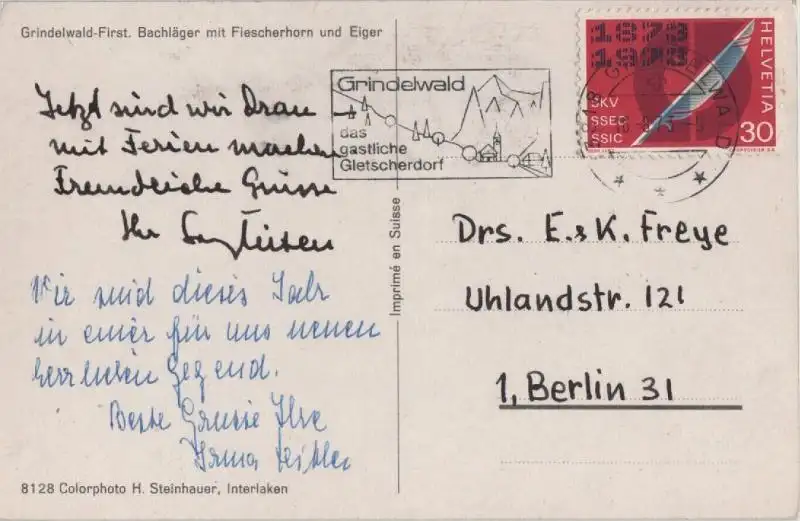 Grindelwald-First. Bachläger mit Fiescherhorn und Eiger
Jetzt sind wir dran
mit Ferien machen
Freundliche Grüsse
Ihr
Wir sind dieses Jahr
in einer für uns neuen
herrlichen Gegend.
Beste Grüsse Ihre
Irma
8128 Colorphoto H. Steinhauer, Interlaken
Imprimé en Suisse
Grindelwald
das
gastliche
Gletscherdorf
1873
1973
SKV
SSEC
SSIC
HELVETIA
30
GRINDELWALD
Drs. E. & K. Freye
Uhlandstr. 121
1, Berlin 31